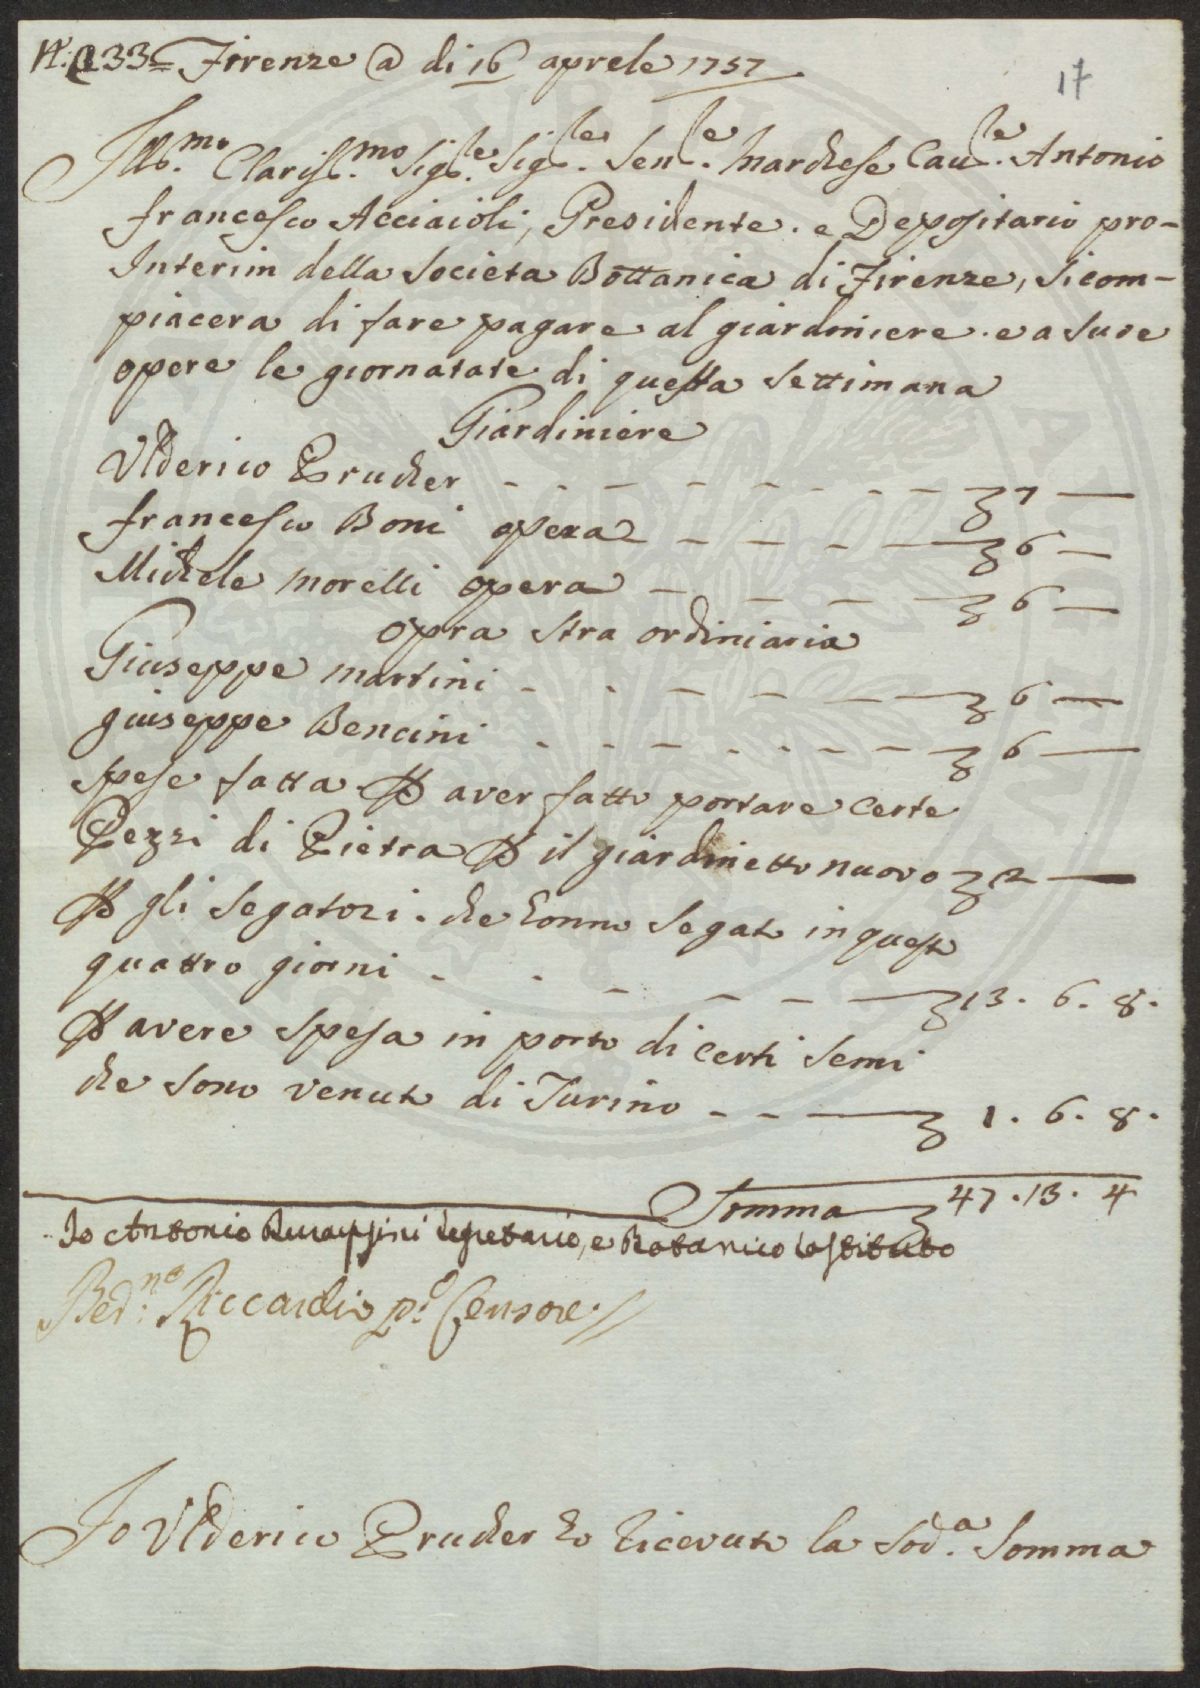 N.° 233= Firenze @ di 16 aprele 1757
17
Ill.mo Clariss.mo Sig.le Sig.le Sen.le Marchese Cau.le Antonio
francesco Acciaioli, Presidente. e Depositario pro-
Interim della Societa Bottanica di Firenze, si com-
piacera di fare pagare al giardiniere. e a sure
opere le giornatate di questa settimana
Giardiniere
Ulderico Prucher - - - - - - - - - 7 —
francesco Boni opera - - - - 6 —
Michele morelli opera - - - - 6 —
opra stra ordiniaria
Giuseppe martini - - - - - 6 —
giuseppe Bencini - - - - - - - - 6 —
spese fatta P aver fatto portare certe
Pezzi di Pietra P il giardinetto nuovo 2 —
P gli segatori. che hanno segato in questi
quattro giorni - - - - - 13. 6. 8.
P avere spesa in porto di certi semi
che sono venuti di Turino - - - 1. 6. 8.
Somma 47. 13. 4
Io Antonio Durazzini Segretario, e Botanico sostituto
Bed.no Riccardi p.o Censore //
Io Ulderico Prucher ho ricevuto la sod.a somma